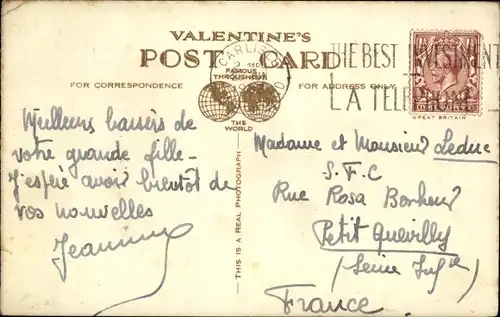 VALENTINE'S
POST CARD
FAMOUS
THROUGHOUT
THE
WORLD
FOR CORRESPONDENCE
FOR ADDRESS ONLY
CARLISLE
THE BEST INVESTMENT
A TELEPHONE
GREAT BRITAIN
Meilleurs baisers de
votre grande fille -
J'espère avoir bientôt de
vos nouvelles
THIS IS A REAL PHOTOGRAPH
Madame et Monsieur Leduc
S.F.C
Rue Rosa Bonheur
Petit Quevilly
(Seine Infre)
France